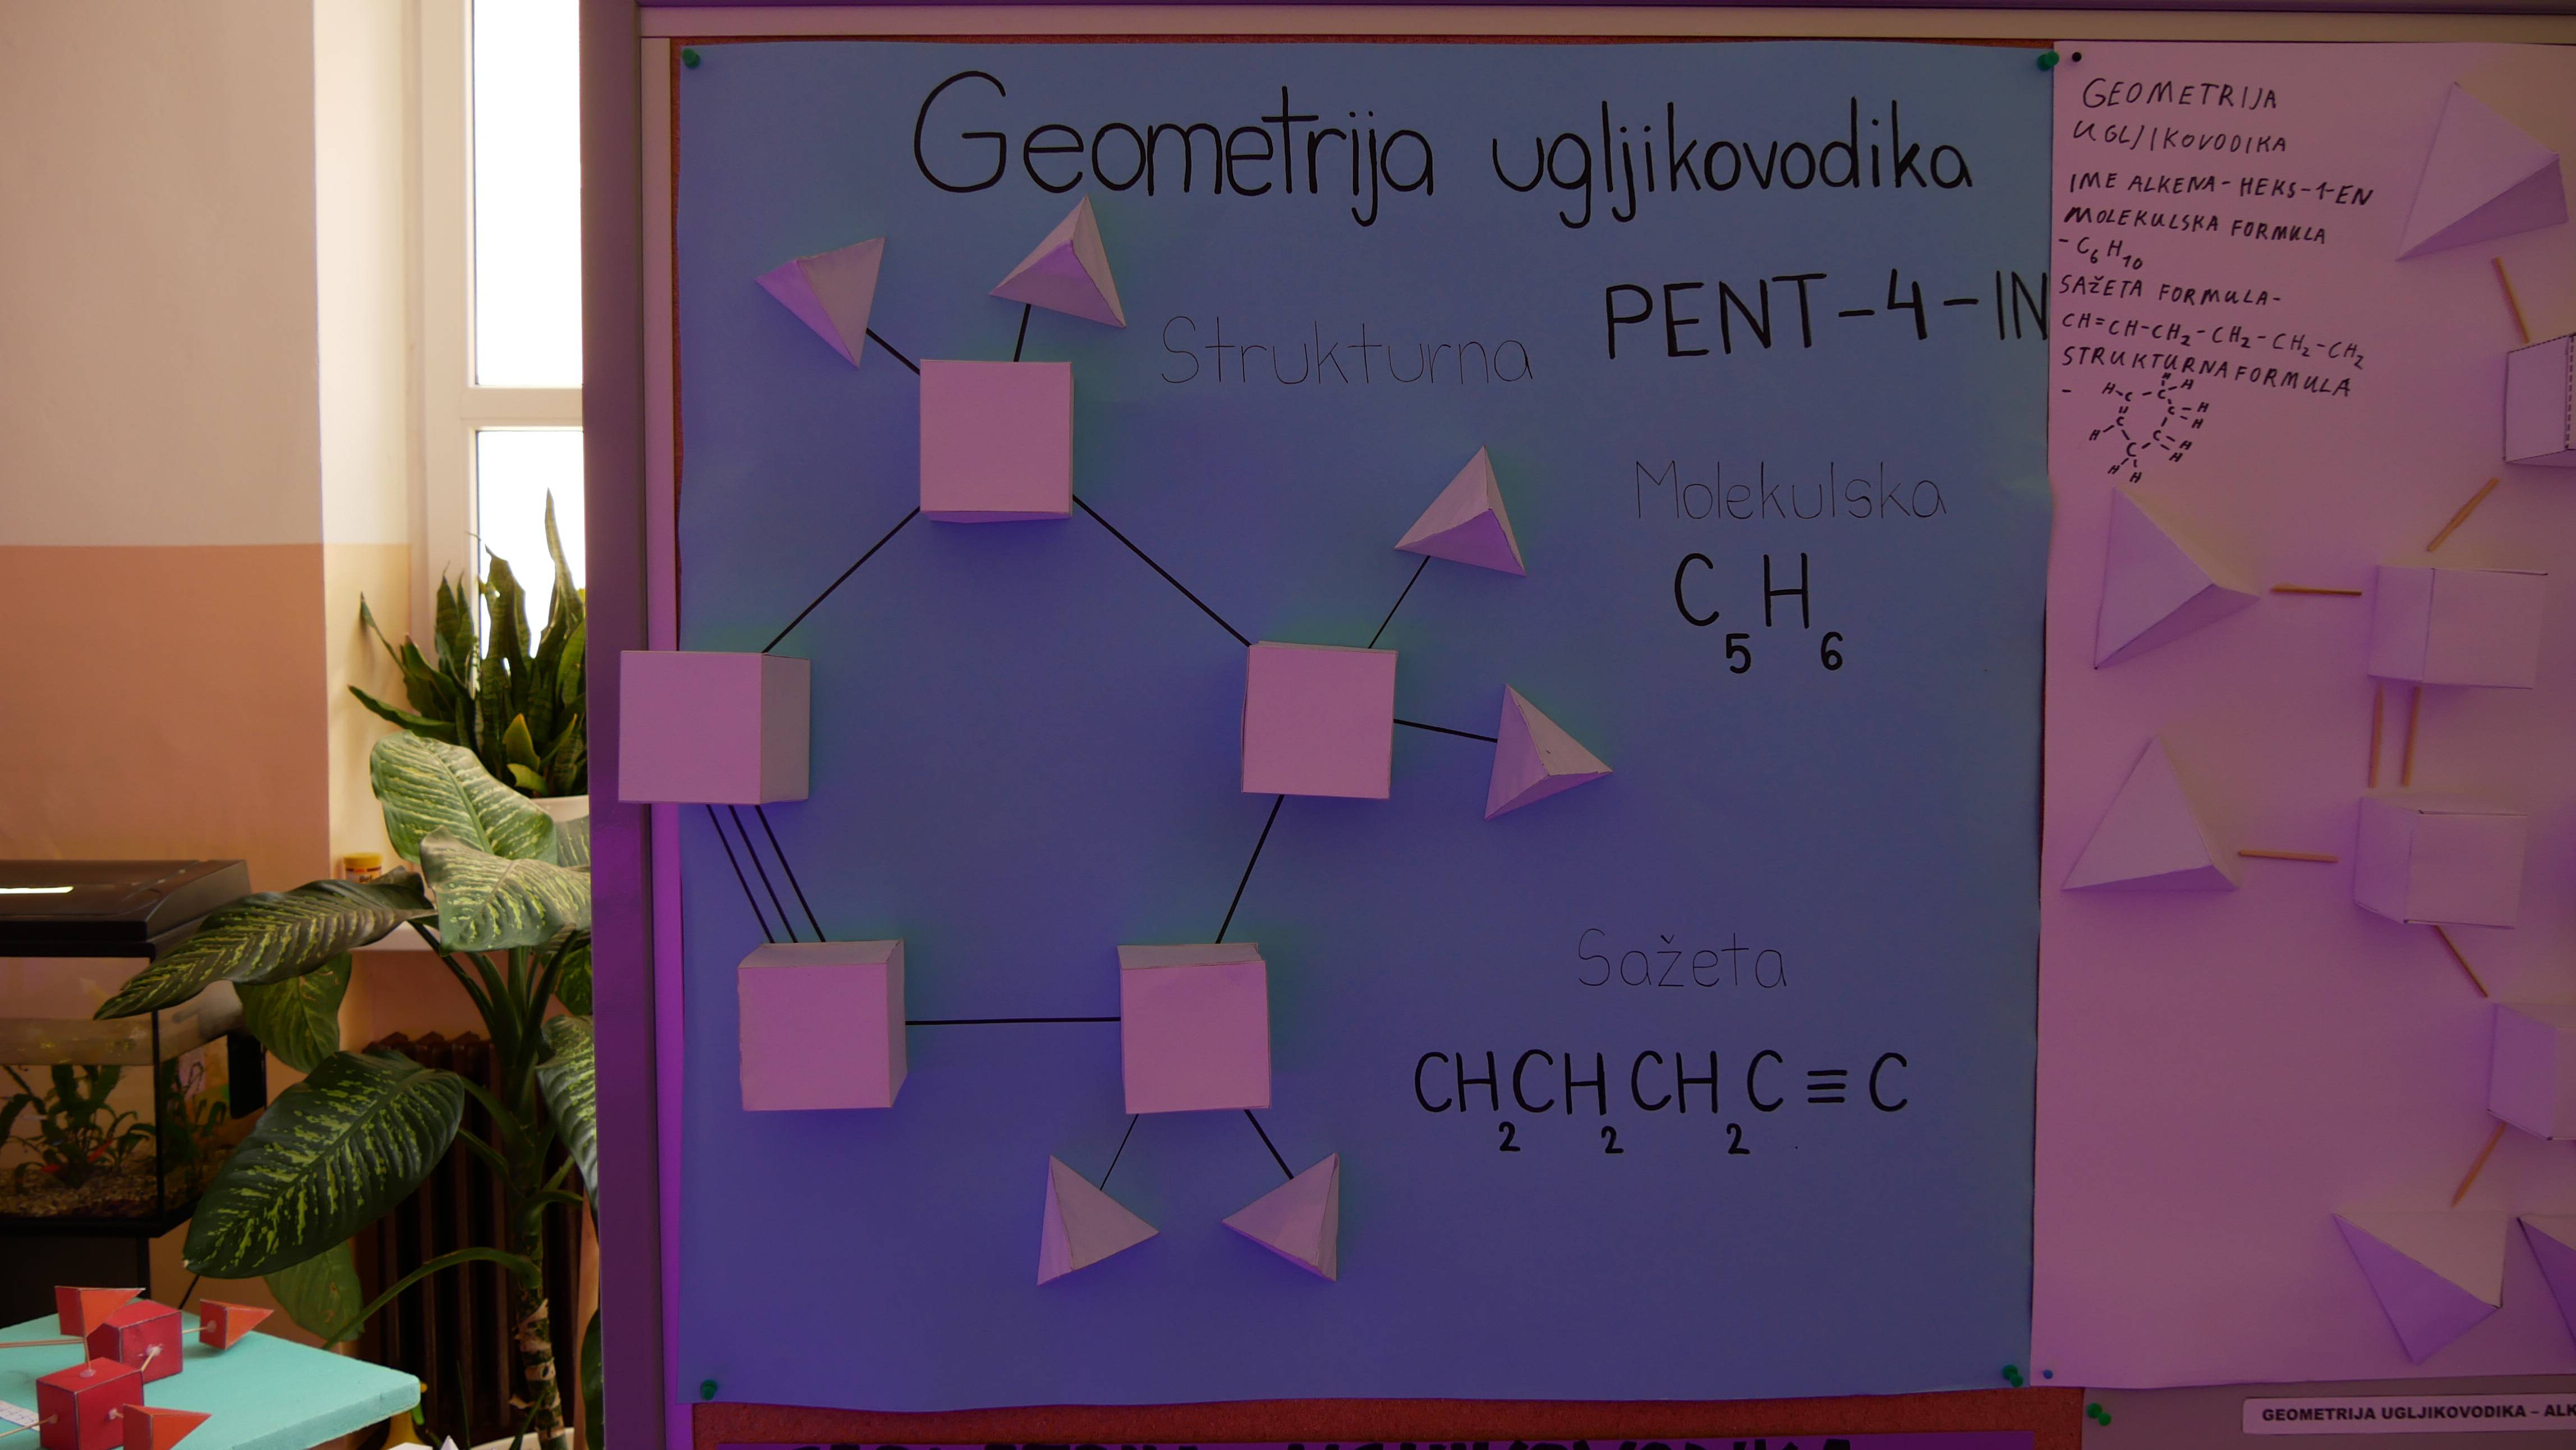 Geometrija ugljikovodika
Strukturna
PENT-4-IN
Molekulska
C5H6
Sažeta
CH2CH2CH2C≡C
GEOMETRIJA
UGLJIKOVODIKA
IME ALKENA-HEKS-1-EN
MOLEKULSKA FORMULA
-C6H10
SAŽETA FORMULA-
CH=CH-CH2-CH2-CH2-CH2
STRUKTURNA FORMULA
-
GEOMETRIJA UGLJIKOVODIKA – ALK